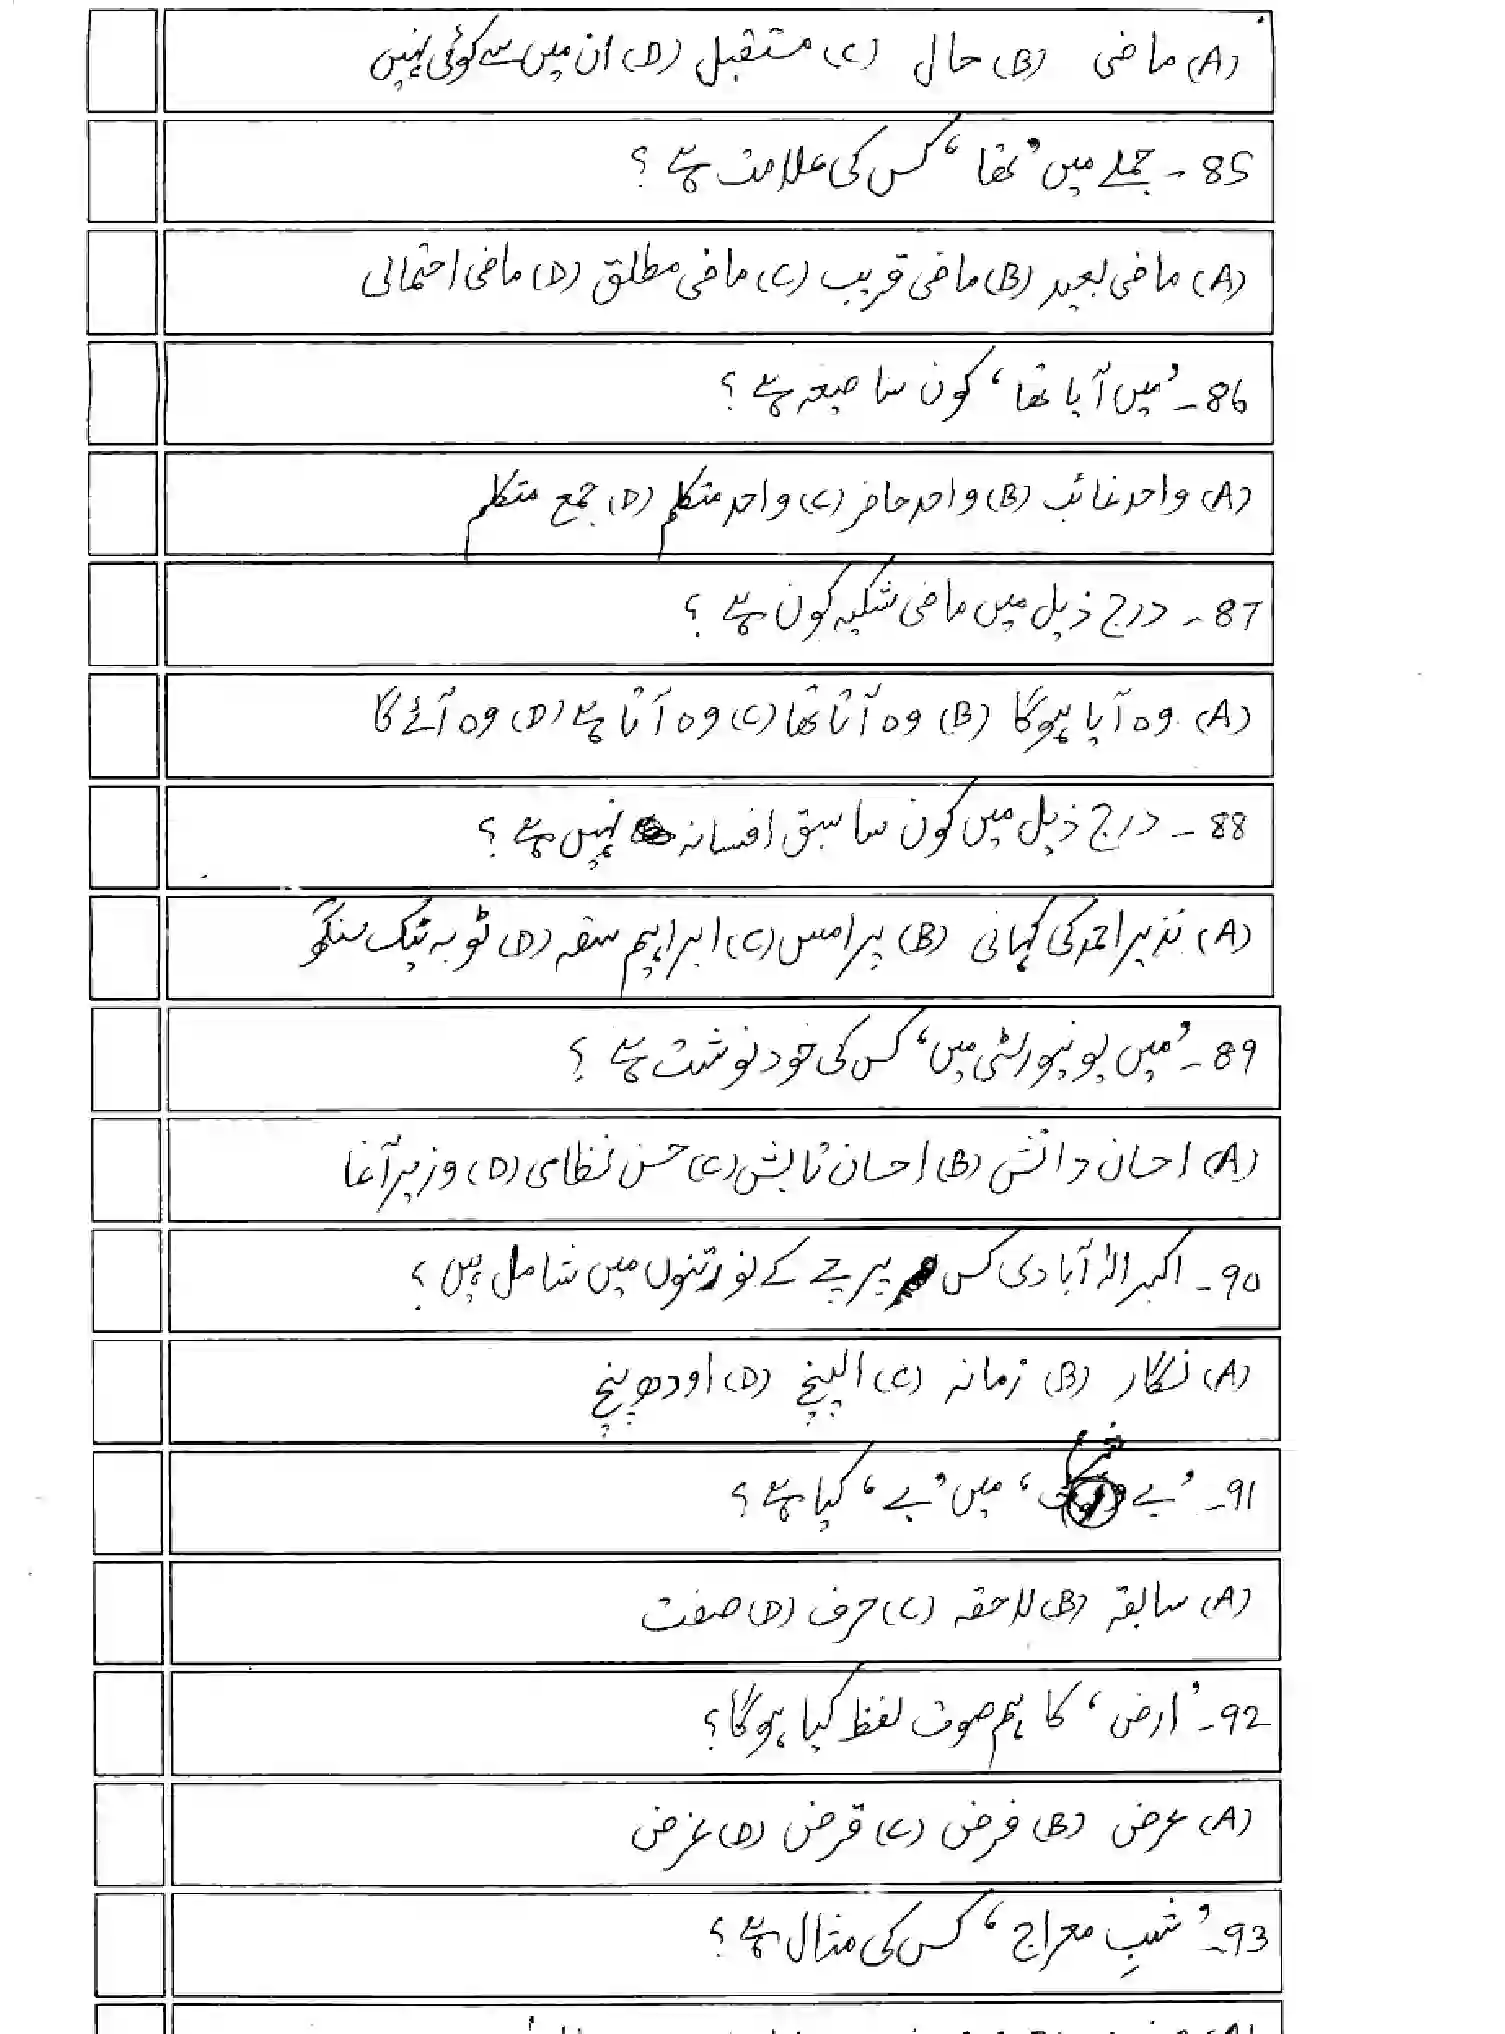 (A) ماضی (B) حال (C) مستقبل (D) ان میں سے کوئی نہیں
85۔ جملے میں ’تھا‘ کس کی علامت ہے؟
(A) ماضی بعید (B) ماضی قریب (C) ماضی مطلق (D) ماضی احتمالی
86۔ ’میں آیا تھا‘ کون سا صیغہ ہے؟
(A) واحد غائب (B) واحد حاضر (C) واحد متکلم (D) جمع متکلم
87۔ درج ذیل میں ماضی شکیہ کون ہے؟
(A) وہ آیا ہوگا (B) وہ آتا تھا (C) وہ آتا ہے (D) وہ آئے گا
88۔ درج ذیل میں کون سا سبق افسانہ نہیں ہے؟
(A) نذیر احمد کی کہانی (B) پرامس (C) ابراہیم سقہ (D) ٹوبہ ٹیک سنگھ
89۔ ’میں یونیورسٹی میں‘ کس کی خودنوشت ہے؟
(A) احسان دانش (B) احسان تابش (C) حسن نظامی (D) وزیر آغا
90۔ اکبر الٰہ آبادی کس پرچے کے نورتنوں میں شامل ہیں؟
(A) نگار (B) زمانہ (C) الپنچ (D) اودھ پنچ
91۔ ’بے ‘ میں ’بے‘ کیا ہے؟
(A) سابقہ (B) لاحقہ (C) حرف (D) صفت
92۔ ’ارض‘ کا ہم صوت لفظ کیا ہوگا؟
(A) عرض (B) فرض (C) قرض (D) غرض
93۔ ’شبِ معراج‘ کس کی مثال ہے؟